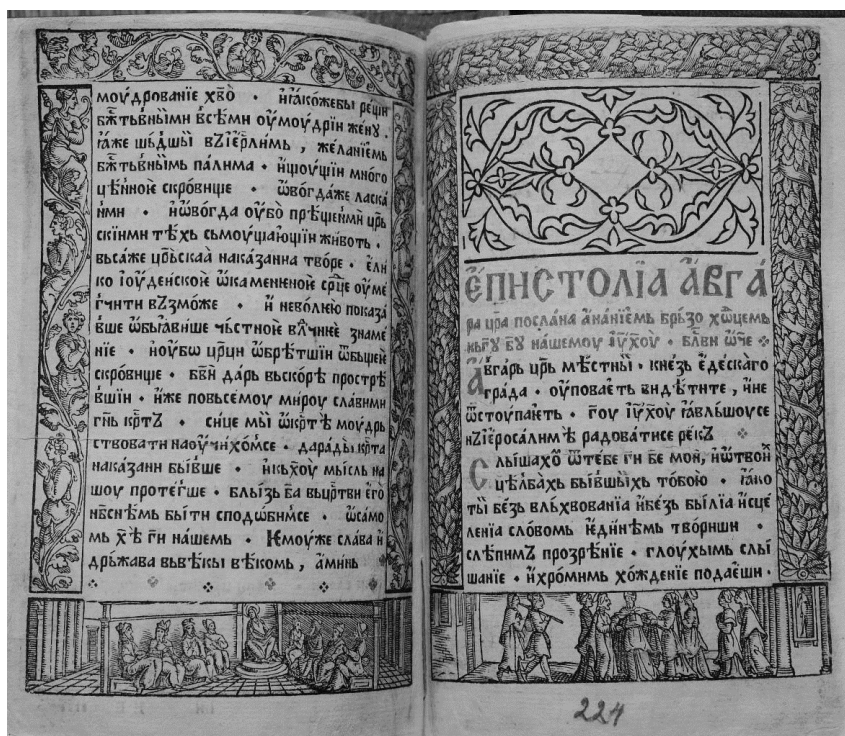 моүдрованїе хв҃о · ꙗ҆коже бы рещи
бж҃тьвныими в̾сѣми оу҆моүдрїи женү .
ꙗ҆же шьдшы въ і҆ер҃лимь , же́ланїемь
бж҃тьв̾ныимь палима · и҆щоущїи мно́го
цѣ́нноѥ скро́вище · ѡ҆вогда́же ласка́
нми · и҆ѡ҆во́гда оубо прѣще́нми цр҃ь
скїими тѣ́хь сьмоущающїи живо́ть .
вьса́же цр҃ьскаа̀ наказа́нїа твѡ́ре · є҆ли
ко і҆оуде́йскоѥ ѡ҆каме́нѥноѥ ср҃це оуме
гчи́ти въ змо́же · и҆ нево́лнею показа́
вше ѡ҆бы́авише чь́стноѥ вл҃чнѥ знаме́
нїе · и҆оубѡ цр҃ци ѡ҆брѣ́тшїи ѡ҆б̾щеѥ
скро́вище · бв҃и да́рь вьско́рѣ простре́
вшїи · и҆же повьсе́моу ми́роу сла́вими
гн҃ь кр҃тъ · си́це мы̀ ѡ҆кр҃тѣ моу́дрь
ствовати наоучи́хомсе · дара́ды кр҃та
наказа́ни бы́вше · и҆кьх҃оу мы́сль на
шоу проте́гше · бльі́зь ба вьцр҃тви є҆го̀
нб҃снѣмь бы́ти сподѡ́бимсе · ѡ҆само
мь х҃ѣ ги на́шемь · Ѥмоүже сла́ва и҆
дрьжава вьвѣ́кы вѣ́комь , а҆ми́нь
є҆пистолїа а҆вга́
ра цр҃а посла́на а҆на́нїемь брь́зо хѡ́цемь
кьг҃у б҃у на́шемоу і҆ух҃оу · бл҃ви ѡ҆ч҃е
А҆вгарь цр҃ь мѣ́стны̀ · кне́зь є҆де́скаго
гра́да · оупова́еть ви́дѣтите , и҆не
ѿстоупа́еть · г҃оу і҆ух҃оу ꙗ҆вльшоусе
и҆зі҆еросали́мѣ ра́доватисе ре́къ
Слы́шахѡ ѿте́бе г҃и б҃е мо́и, и҆ѡ҆тво́й
цѣ́лбахь бы́вшыихь то́бою · ꙗ҆ко
ты̀ бе́зь вльхвова́нїа и҆бе́зь бы́лїа и҆сце
ле́нїа сло́вомь и҆ди́нѣмь тво́риши ·
слѣпимъ прозрѣ́нїе · глоу́хымь слы
ша́нїе · и҆хро́мимь хожде́нїе подае́ши ·
224